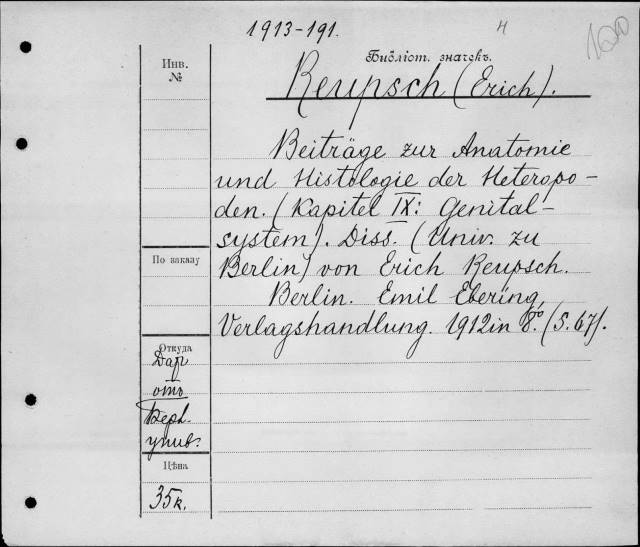 1913-191.
4
100
Инв.
№
Библіот. значекъ.
Reupsch (Erich).
Beiträge zur Anatomie
und Histologie der Heteropo-
den. (Kapitel IX: Genital-
system). Diss. (Univ. zu
По заказу
Berlin) von Erich Reupsch.
Berlin. Emil Ebering,
Verlagshandlung. 1912 in 8º. (S. 67).
Откуда
Дар
отъ
Берл.
унив.
Цѣна
35 к.